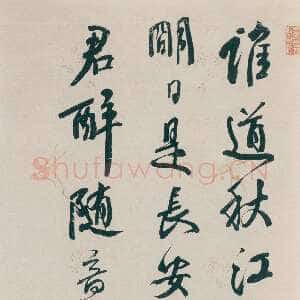 誰道秋江
明日是長安
君醉随
Shufawang.CN